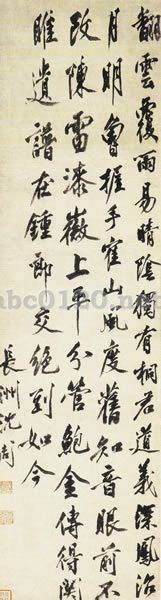 翻雲覆雨易晴陰獨有桐君道義深鳳沼
月明曾握手寉山風度舊知音眼前不
改陳雷漆徽上平分管鮑金傳得関
雎遺譜在鍾郎交絕到如今
長洲沈周